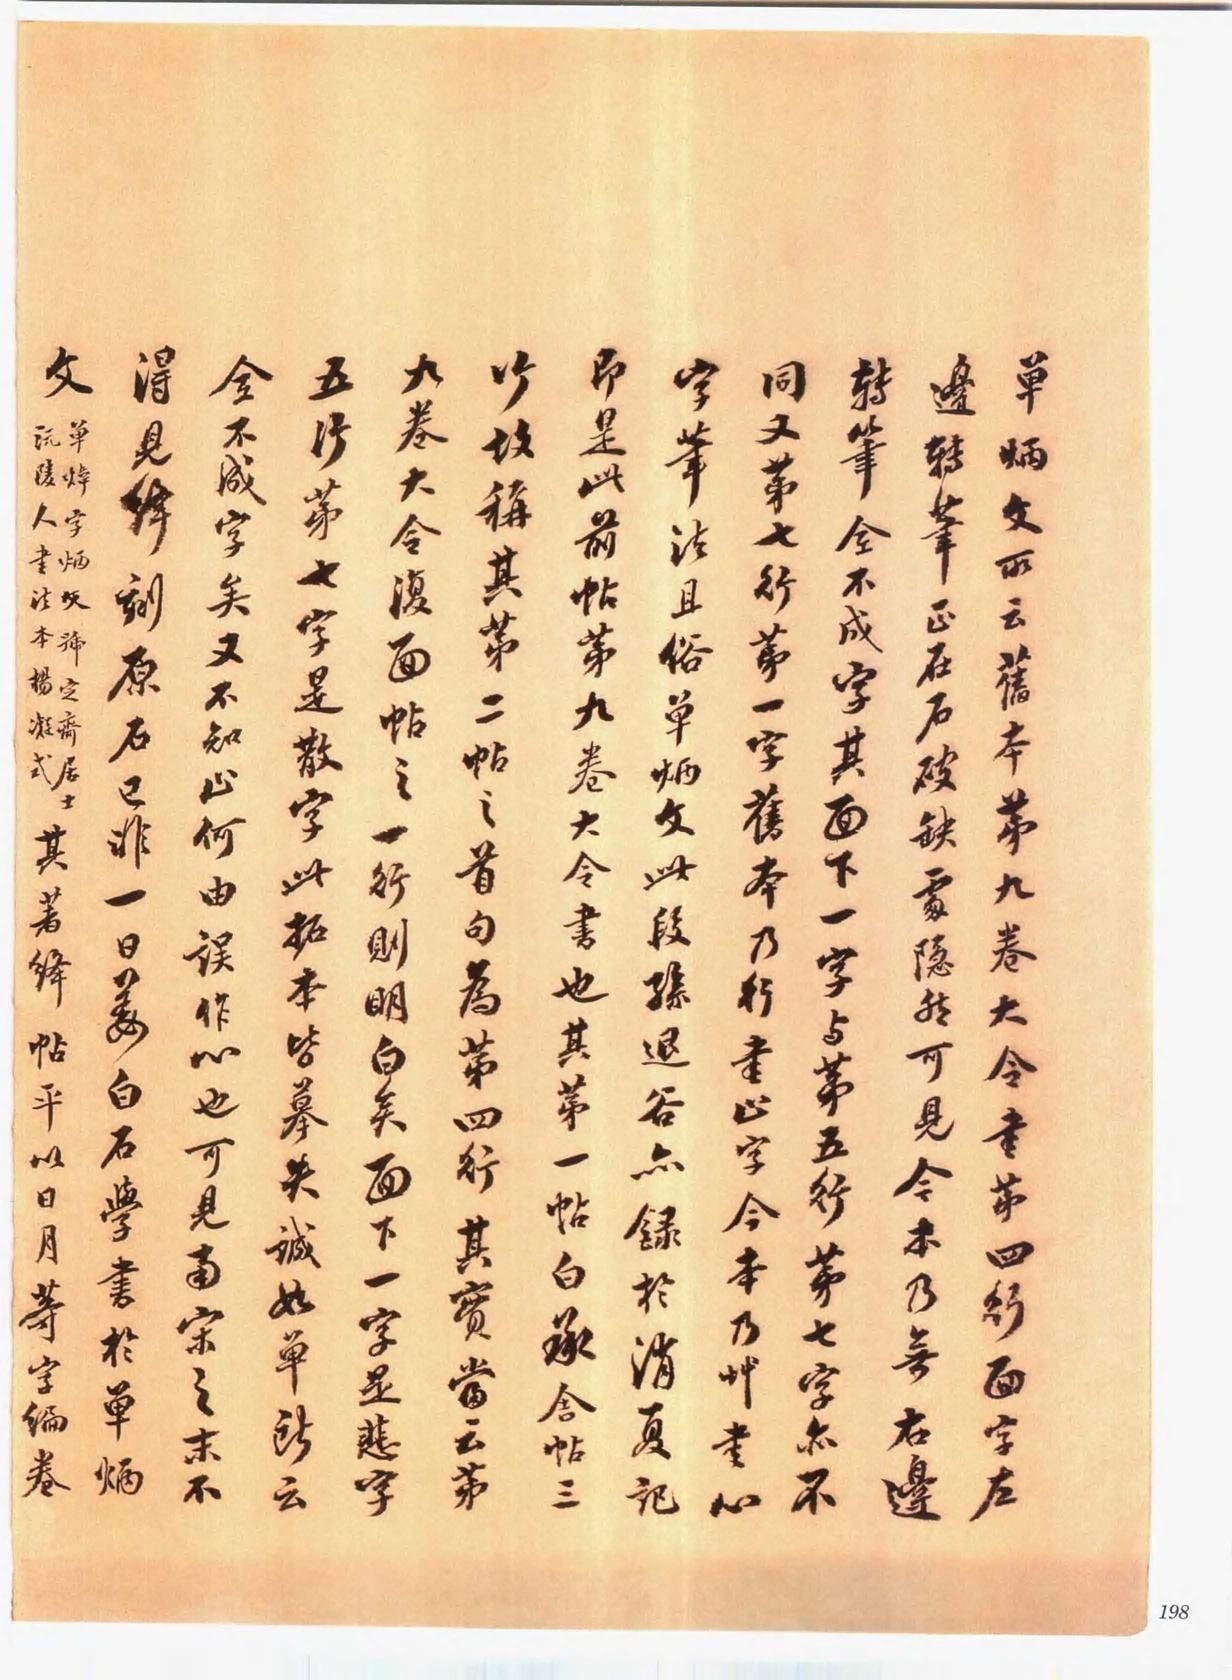 單炳文所云舊本第九卷大令書第四行面字左
邊轉筆正在石破缺處隱然可見今本乃無右邊
轉筆全不成字其面下一字与第五行第七字亦不
同又第七行第一字舊本乃行書止字今本乃艸書心
字筆法且俗單炳文此段孫退谷亦錄於消夏記
即是此前帖第九卷大令書也其第一帖白承舍帖三
行故稱其第二帖之首句為第四行其實當云第
九卷大令復面帖之一行則明白矣面下一字是悲字
五行第七字是散字此拓本皆摹失誠如單所云
全不成字矣又不知止何由誤作心也可見南宋之末不
得見絳刻原石已非一日姜白石學書於單炳
文
單煒字炳文號定齋居士
沅陵人書法本楊凝式
其著絳帖平以日月等字編卷
198